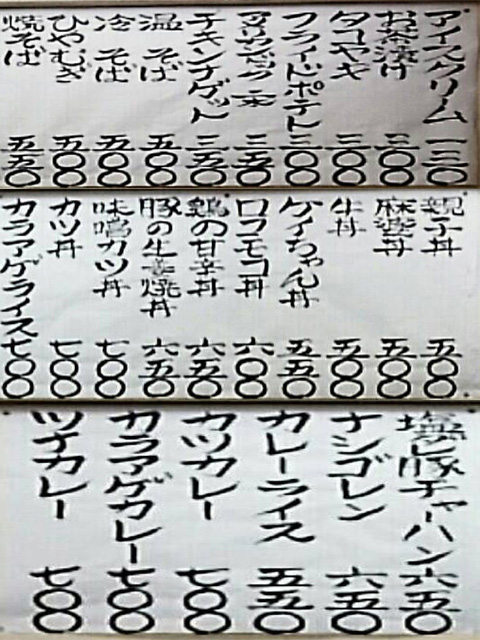 アイスクリーム 一三〇
お茶漬け 三〇〇
タコヤキ 三〇〇
フライドポテト 三〇〇
三五〇
チキンナゲット 三五〇
温そば 五〇〇
冷そば 五〇〇
ひやむぎ 五〇〇
焼そば 五五〇
親子丼 五〇〇
麻婆丼 五〇〇
牛丼 五〇〇
ケイちゃん丼 五五〇
ロコモコ丼 六〇〇
鶏の甘辛丼 六五〇
豚の生姜焼丼 六五〇
味噌カツ丼 七〇〇
カツ丼 七〇〇
カラアゲライス 七〇〇
塩ダレ豚チャーハン 六五〇
ナシゴレン 六五〇
カレーライス 五五〇
カツカレー 七〇〇
カラアゲカレー 七〇〇
ツナカレー 七〇〇